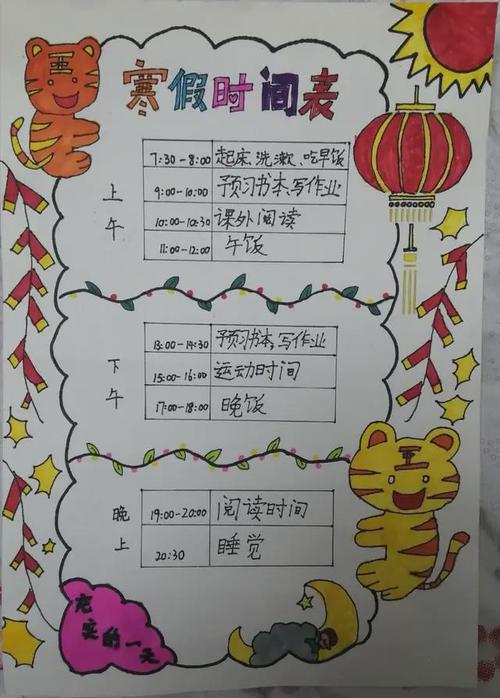 寒假时间表
上午
7:30-8:00 起床、洗漱、吃早饭
9:00-10:00 预习书本,写作业
10:00-10:30 课外阅读
11:00-12:00 午饭
下午
13:00-14:30 预习书本,写作业
15:00-16:00 运动时间
17:00-18:00 晚饭
晚上
19:00-20:00 阅读时间
20:30 睡觉
充实的一天